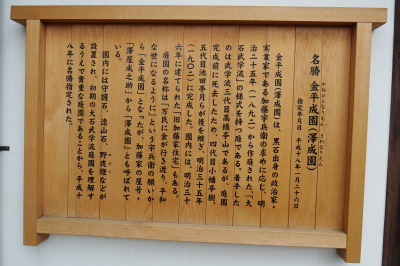 名勝 金平成園（澤成園）
かねひらなりえん（さわなりえん）
指定年月日 平成十八年一月二十六日
金平成園（澤成園）は、黒石出身の政治家・
実業家である加藤宇兵衛の求めに応じ、明
治二十五年（一八九二）から作庭された、「大
石武学流」の様式を持つ庭である。着手した
のは武学流三代目高橋亭山であるが、庭園
完成前に死去したため、四代目小幡亭樹、
五代目池田亭月らが後を継ぎ、明治三十五年
（一九〇二）に完成した。園内には、明治三十
六年に建てられた「旧加藤家住宅」もある。
庭園の名称は「万民に金が行き渡り、平和
な世になるように」という宇兵衛の願いか
ら「金平成園」となったが、加藤家の屋号・
「澤屋成之助」から「澤成園」とも呼ばれて
いる。
園内には守護石、遠山石、野夜燈などが
設置され、初期の大石武学流庭園を理解す
るうえで貴重な庭園であることから、平成十
八年に名勝指定された。